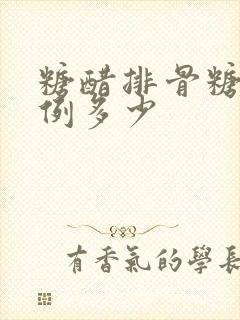 糖醋排骨糖
例多少
有香氣的學長